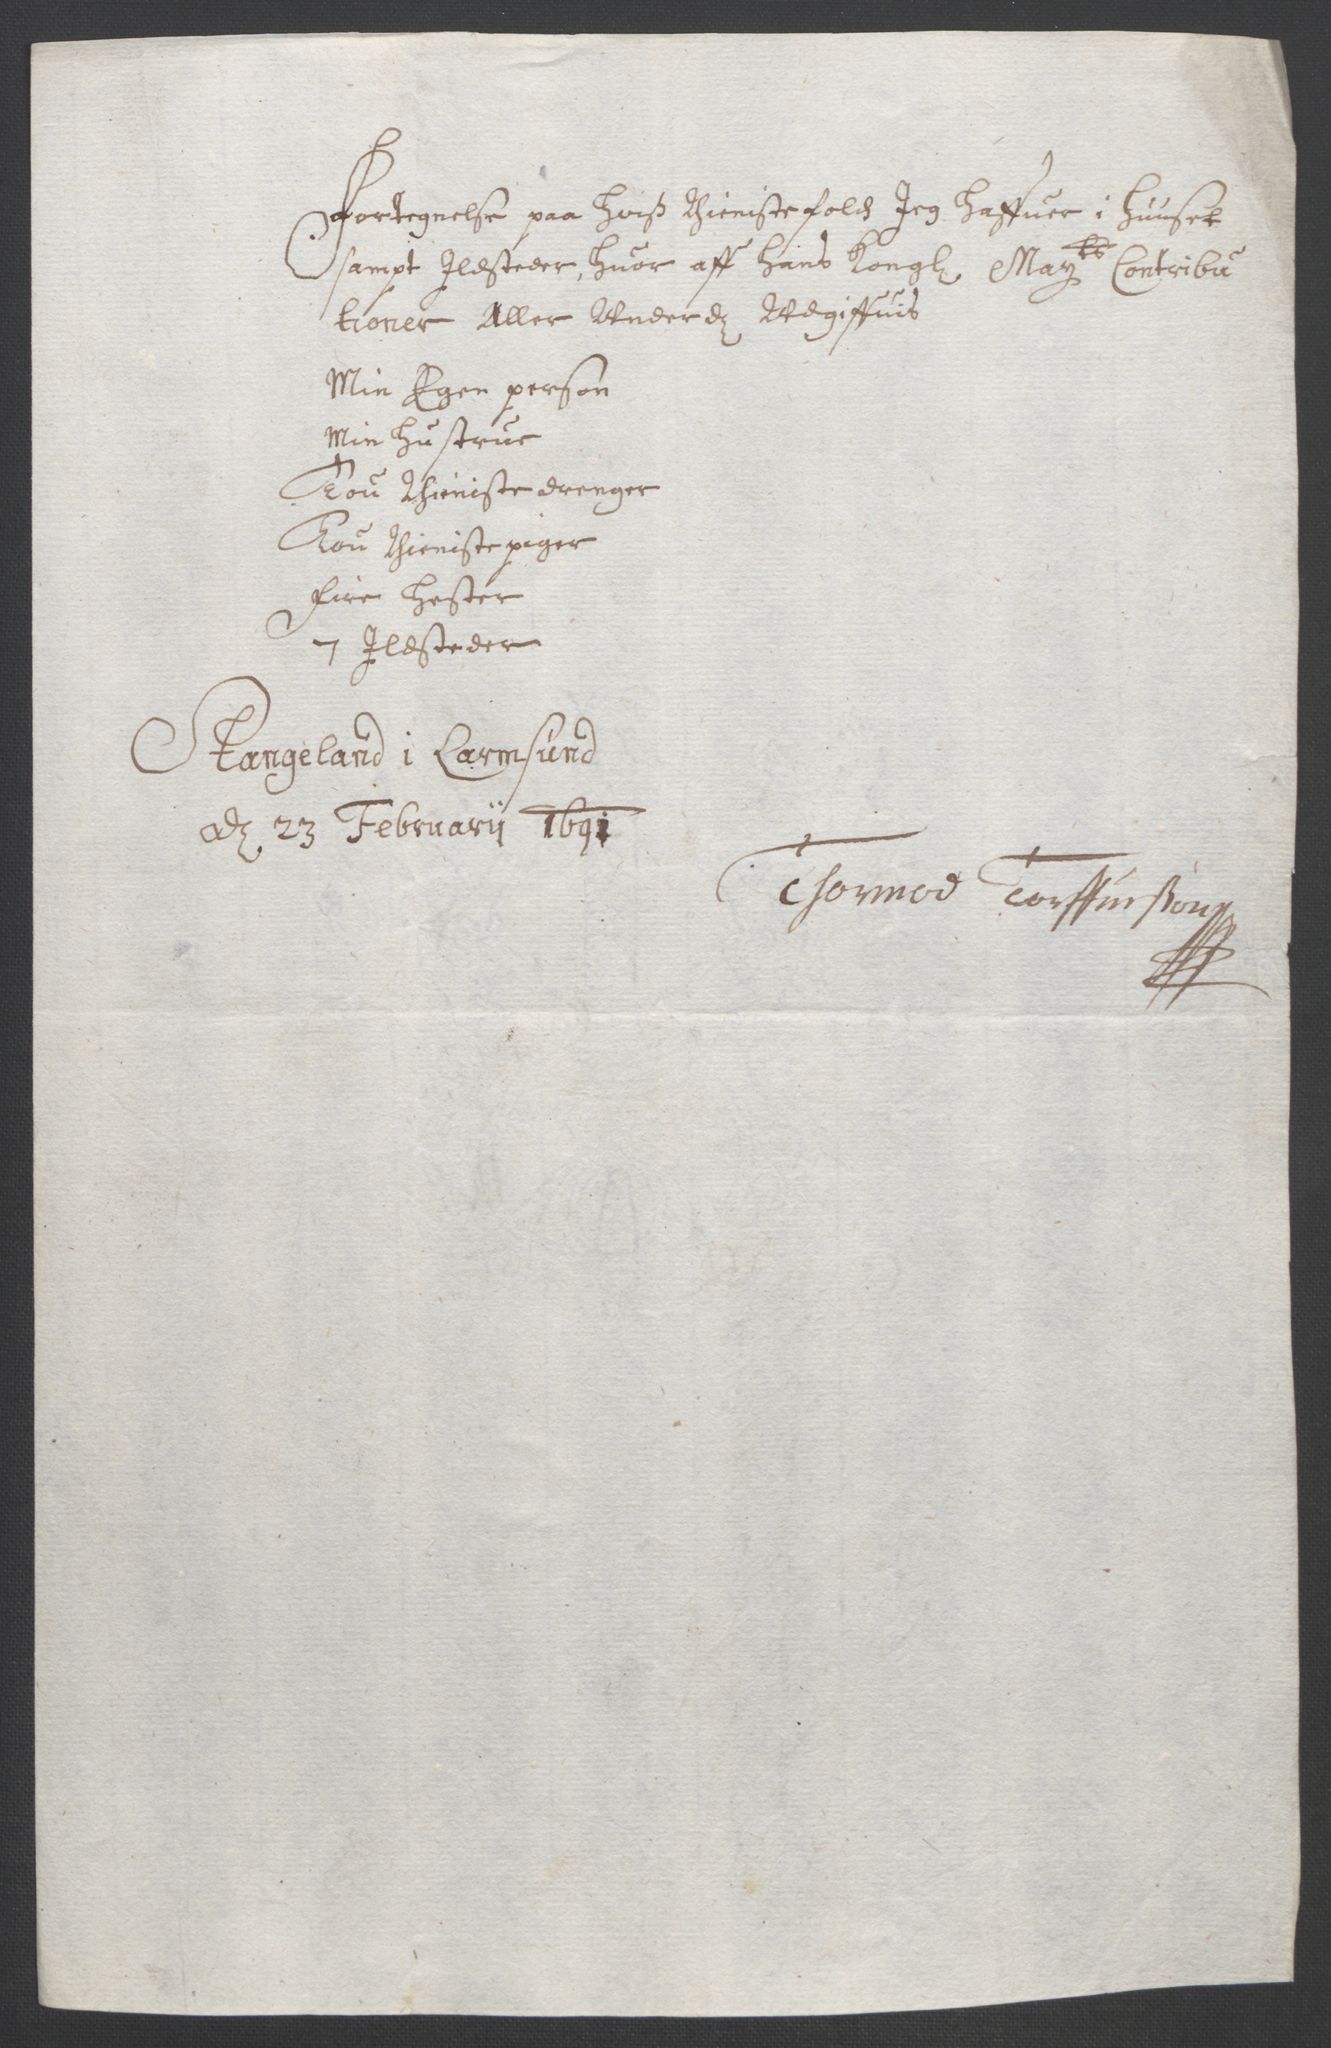 Fortegnelse paa hviß thienistefolch Jeg haffuer i huuset
sampt Ildsteder, huor aff hans Kongl. May<sup>ts</sup> Contribu
tioner Aller Underd. Udgiffuis
Min Egen person
Min hustrue
Tou thienistedrenger
Tou thienistepiger
fire hester
7 Ildsteder
Stangeland i Carmsund
ad. 23 Februarij 1691
Thormod Torffueßøn